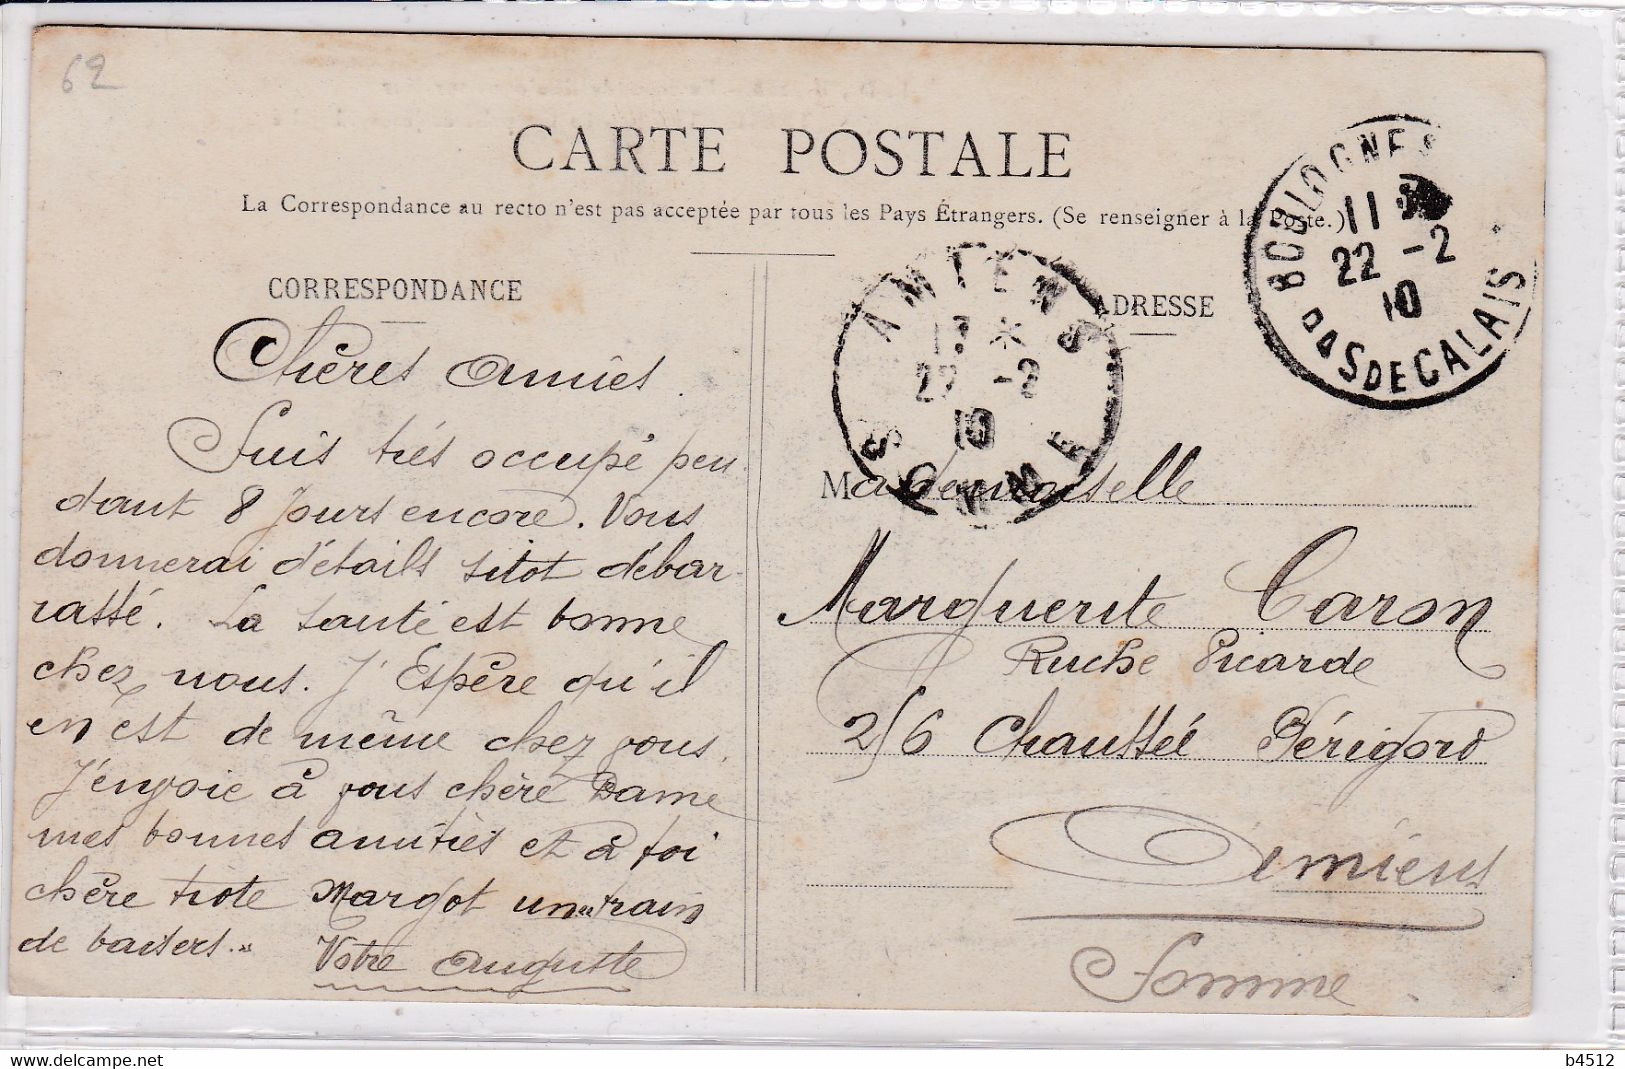 62
CARTE POSTALE
La Correspondance au recto n'est pas acceptée par tous les Pays Étrangers. (Se renseigner à la Poste.)
CORRESPONDANCE
Chères Amies.
Suis très occupé pen-
dant 8 Jours encore. Vous
donnerai détails sitot débar-
rassé. La santé est bonne
chez nous. J'Espère qu'il
en est de même chez vous.
J'envoie à vous chère Dame
mes bonnes amitiés et à toi
chère tiote Margot un train
de baisers.
Votre Auguste
ADRESSE
Mademoiselle
Marguerite Caron
Ruche Picarde
256 Chaussée Périgord
Amiens
Somme
BOULOGNE S
11
22 -2
10
PAS DE CALAIS
AMIENS
17 *
22 -2
10
SOMME
www.delcampe.net
b4512